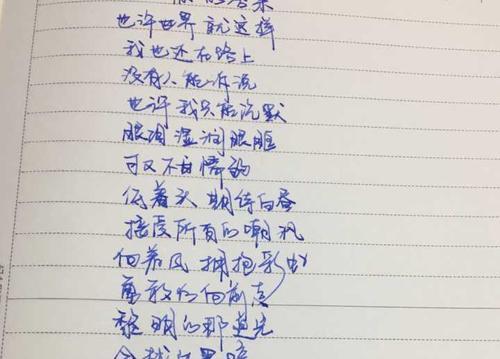 也许世界就这样
我也还在路上
没有人能诉说
也许我只能沉默
眼泪湿润眼眶
可又不甘懦弱
低着头 期待白昼
接受所有的嘲讽
向着风 拥抱彩虹
勇敢的向前走
黎明的那道光